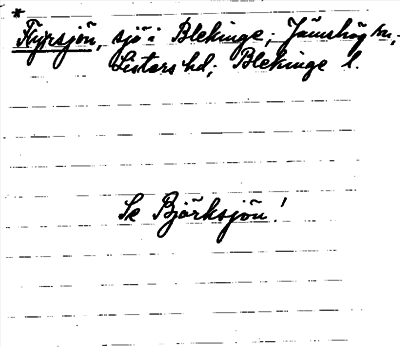 *
Flyrsjön, sjö i Blekinge; Jämshög sn,
Listers hd; Blekinge l.
Se Björksjön!